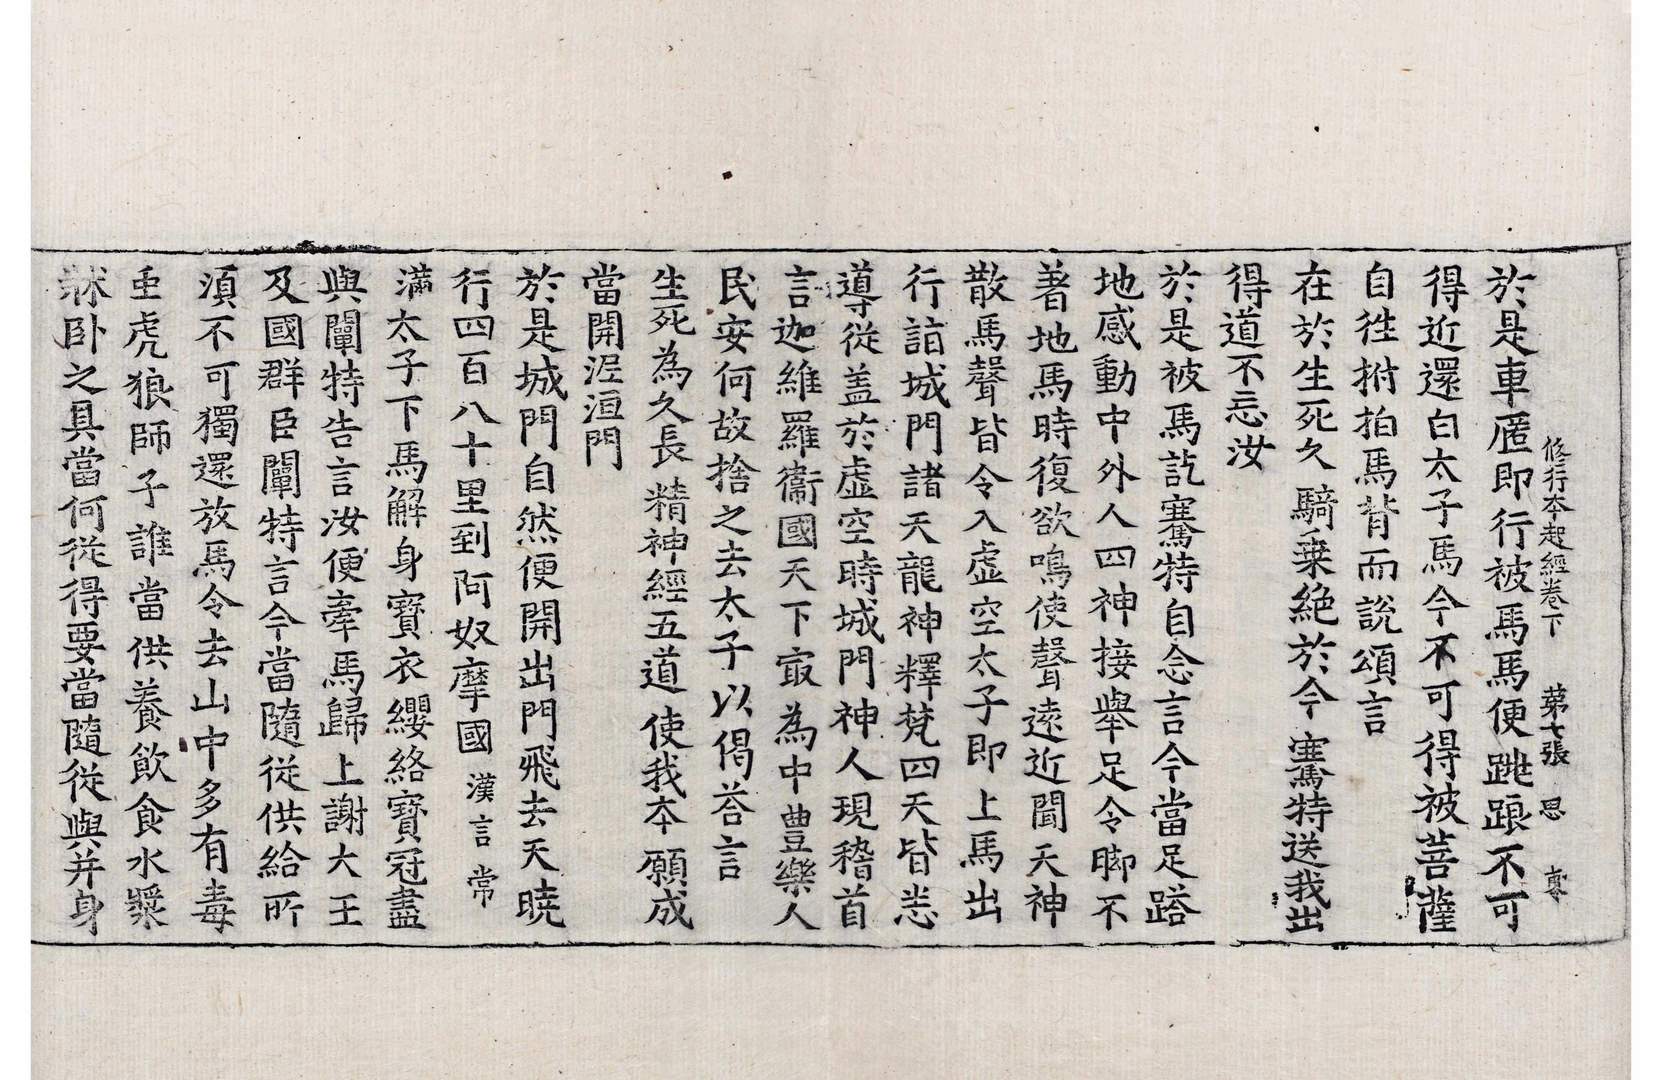 修行本起經卷下 第七張 思
於是車匿即行被馬馬便跳踉不可
得近還白太子馬今不可得被菩薩
自徃拊拍馬背而說頌言
在於生死久 騎乗絶於今 騫特送我出
得道不忘汝
於是被馬訖騫特自念言今當足蹈
地感動中外人四神接舉足令脚不
著地馬時復欲鳴使聲逺近聞天神
散馬聲皆令入虛空太子即上馬出
行詣城門諸天龍神釋梵四天皆悉
導從盖於虛空時城門神人現稽首
言迦維羅衞國天下㝡為中豊樂人
民安何故捨之去太子以偈荅言
生死為久長 精神經五道 使我本願成
當開泥洹門
於是城門自然便開出門飛去天曉
行四百八十里到阿奴摩國 漢言常
滿太子下馬解身寶衣纓絡寶冠盡
與闡特告言汝便牽馬歸上謝大王
及國群臣闡特言今當隨從供給所
湏不可獨還放馬令去山中多有毒
虫虎狼師子誰當供養飮食水漿
牀卧之具當何從得要當隨從與并身